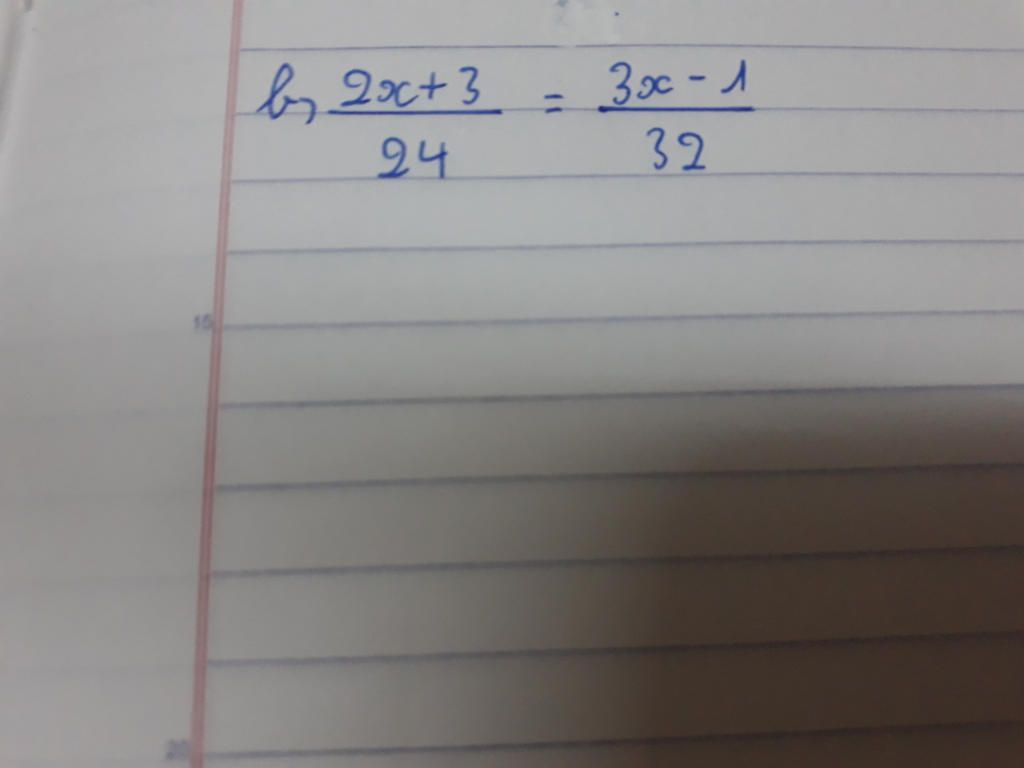 b, 2x+3 = 3x-1
24 32
15
20